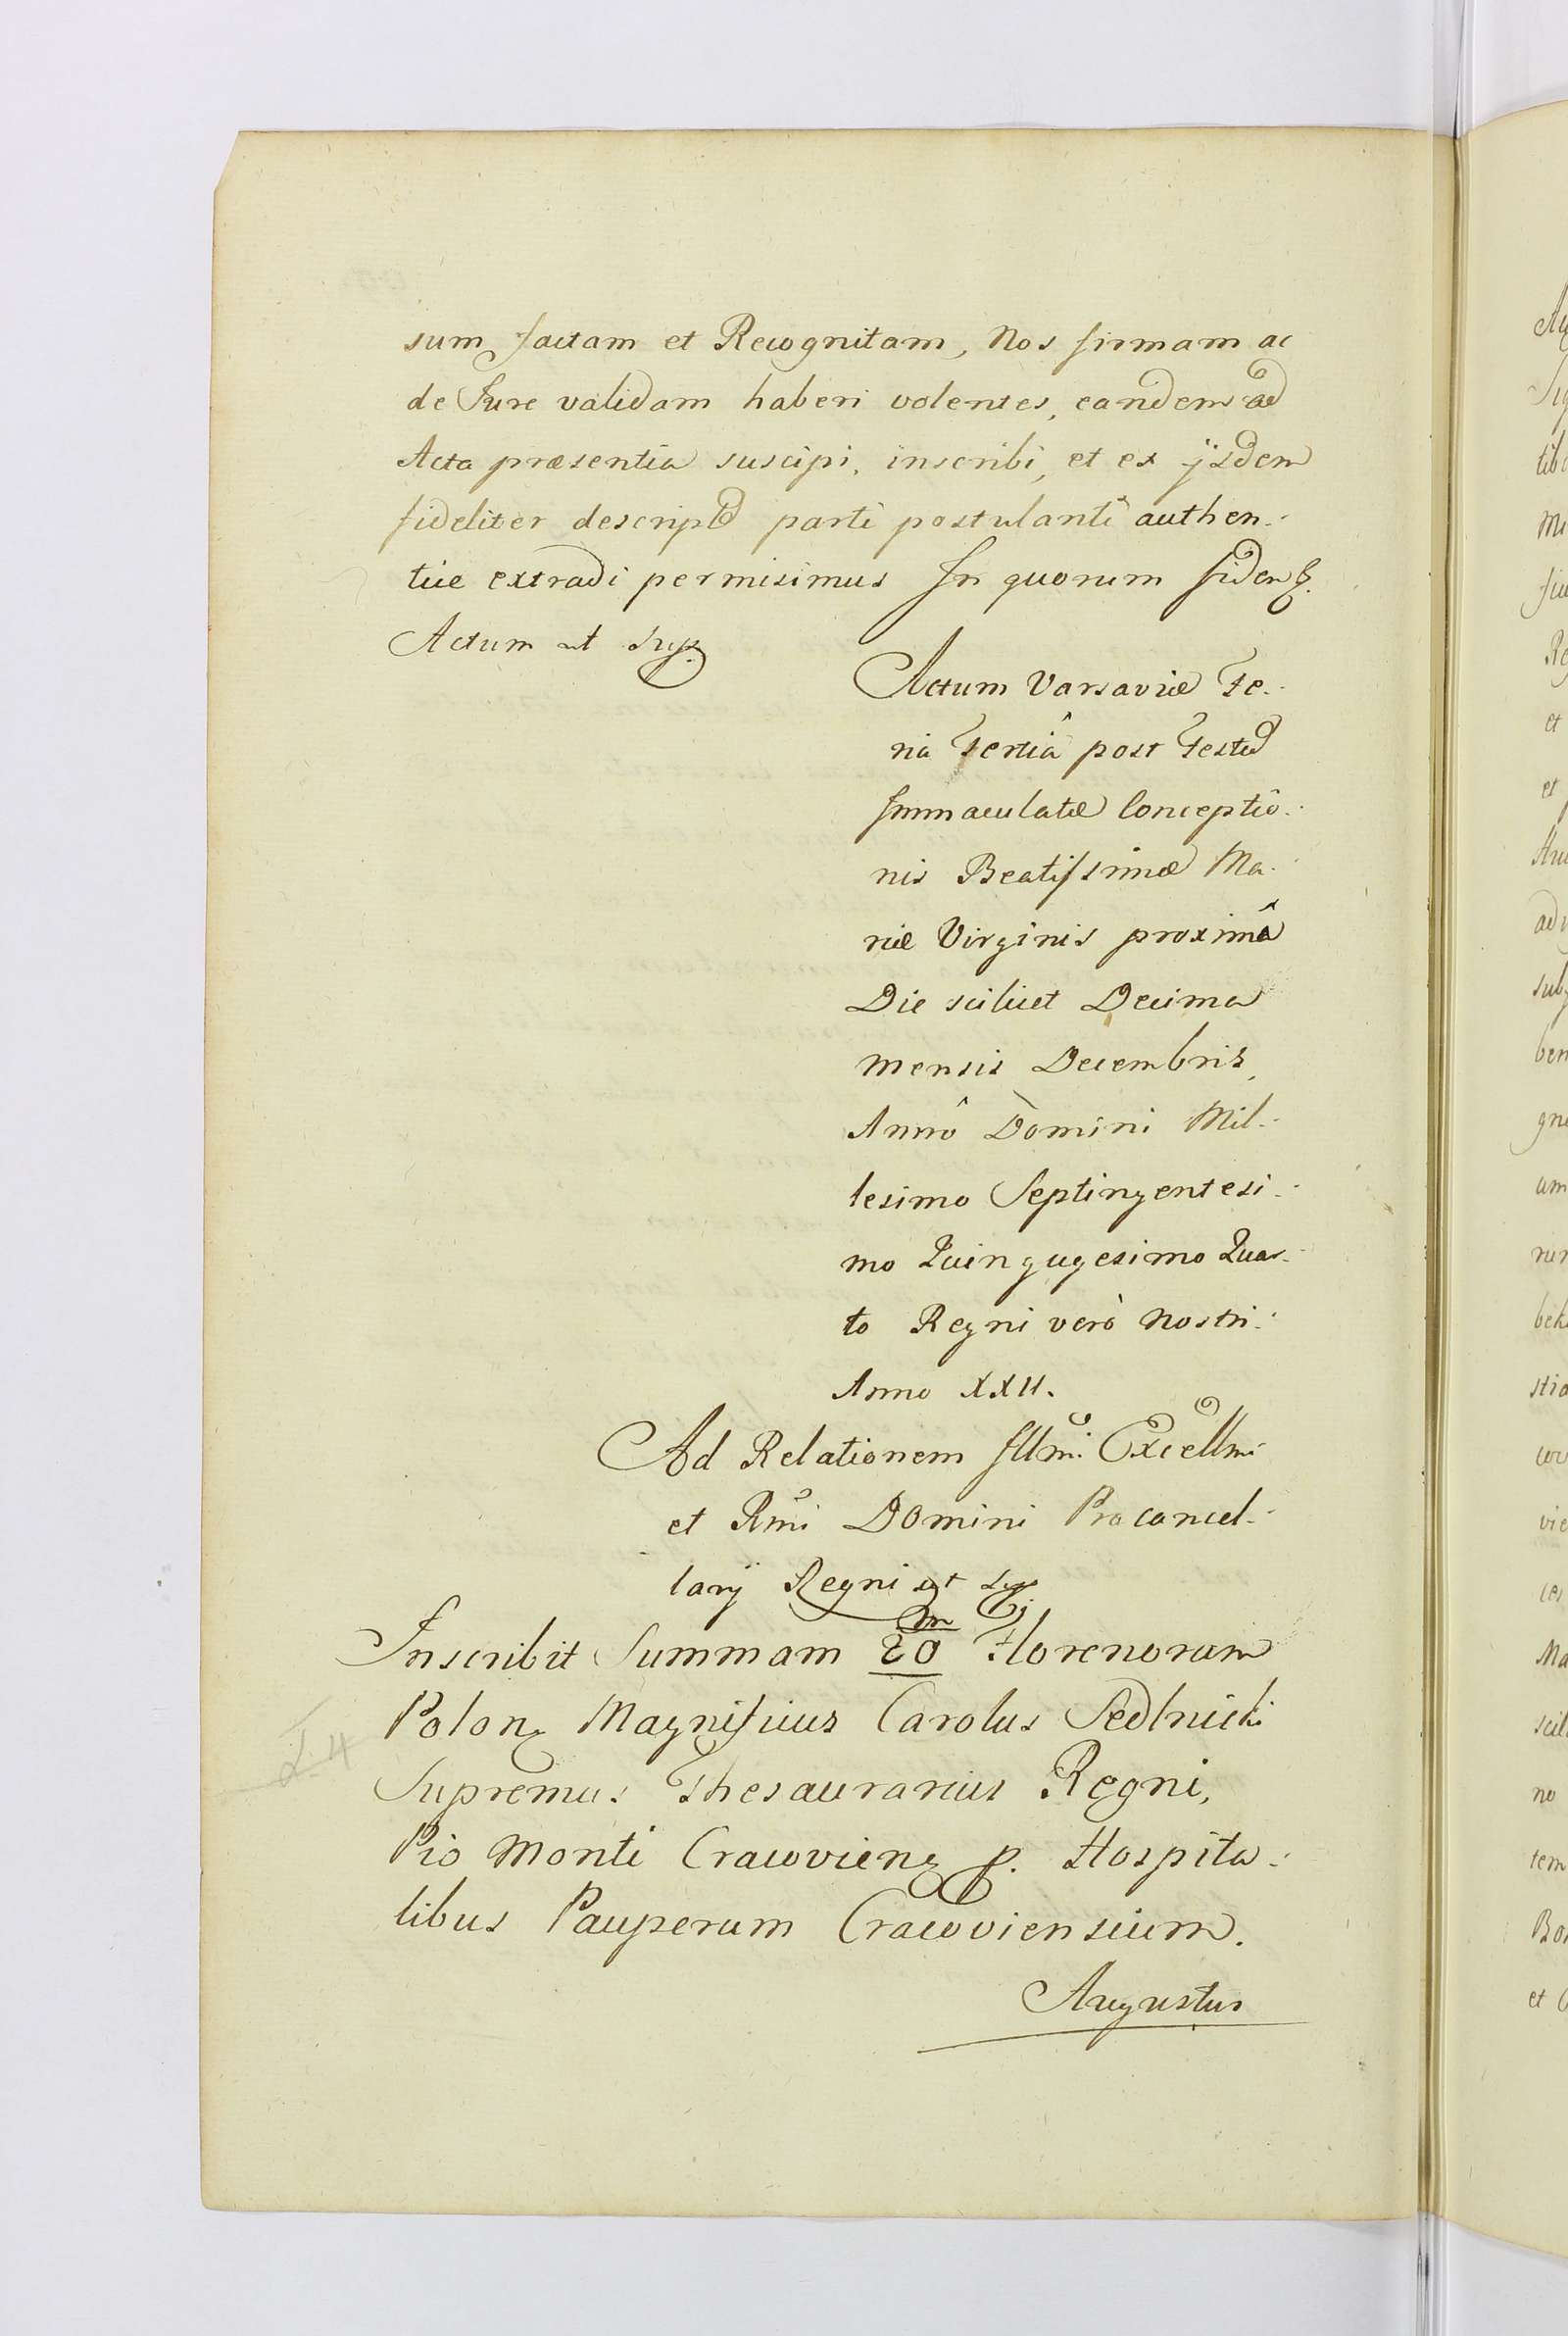 sum factam et Recognitam, Nos firmam ac
de Jure validam haberi volentes, eandem ad
Acta præsentia suscipi, inscribi, et ex ijsdem
fideliter descriptã parti postulanti authen-
tice extradi permisimus In quorum fidem
Actum ut sup.
Actum Varsaviæ Fe-
ria Tertiâ post Festũ
Immaculatæ Conceptio-
nis Beatissimæ Ma-
riæ Virginis proximâ
Die scilicet Decima
Mensis Decembris,
Annô Domini Mil-
lesimo Septingentesi-
mo Quinqugesimo Quar-
to Regni verò Nostri
Anno XXII.
Ad Relationem Illmi Excellmi
et Rmi Domini Procancel-
larij Regni ut sup.
Inscribit Summam 20 m Florenorum
Polon. Magnificus Carolus Sedlnicki
Supremus Thesaurarius Regni,
Pio Monti Cracovien. p. Hospita-
libus Pauperum Cracoviensium.
Augustus